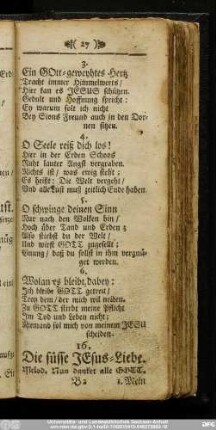 27
3.
Ein GOtt-geweyhtes Hertz
Tracht immer Himmelwerts/
Hier kan es JESUS schützen.
Gedult und Hoffnung spricht:
Ey warum solt ich nicht
Bey Sions Freund auch in den Dor-
nen sitzen.
4.
O Seele reiß dich los!
Hier in der Erden Schoos
Ruht lauter Angst vergraben.
Nichts ist/ was ewig steht:
Es heißt: Die Welt vergeht/
Und alle Lust muß zeitlich Ende haben.
5.
O schwinge deinen Sinn
Nur nach den Wolken hin/
Hoch über Tand und Erden
Also stirbst du der Welt/
Und wirst GOTT zugesellt:
Gnung/ daß du sollst in ihm vergnü-
get werden.
6.
Wolan es bleibt dabey:
Ich bleibe GOTT getreu/
Trotz dem/ der mich wil
Zu GOTT steht meine Pflicht
Im Tod und Leben nicht:
Niemand sol mich von meinem JESU
scheiden.
16.
Die süsse JEsus-Liebe.
Melod. Nun dancket alle GOTT.
1. Mein